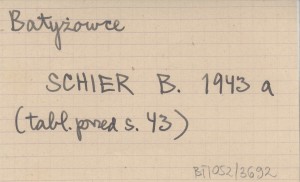 Batyżowce
SCHIER B. 1943 a
(tabl. przed s. 43)
BT1052/3692